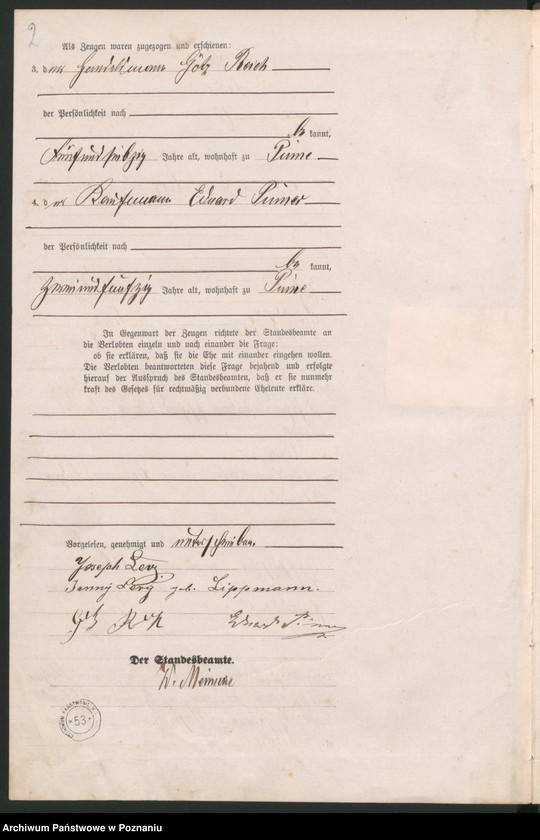 2
Als Zeugen waren zugezogen und erschienen:
3. der Handelsmann Götz Reich
der Persönlichkeit nach
be kannt,
fünfundsiebzig Jahre alt, wohnhaft zu Pinne
4. der Kaufmann Eduard Pinner
der Persönlichkeit nach
be kannt,
zweiundfünfzig Jahre alt, wohnhaft zu Pinne
In Gegenwart der Zeugen richtete der Standesbeamte an
die Verlobten einzeln und nach einander die Frage:
ob sie erklären, daß sie die Ehe mit einander eingehen wollen.
Die Verlobten beantworteten diese Frage bejahend und erfolgte
hierauf der Ausspruch des Standesbeamten, daß er sie nunmehr
kraft des Gesetzes für rechtmäßig verbundene Eheleute erkläre.
Vorgelesen, genehmigt und unterschrieben.
Joseph Levy
Jenny Levy geb. Lippmann.
Götz Reich Eduard Pinner
Der Standesbeamte.
53
Archiwum Państwowe w Poznaniu